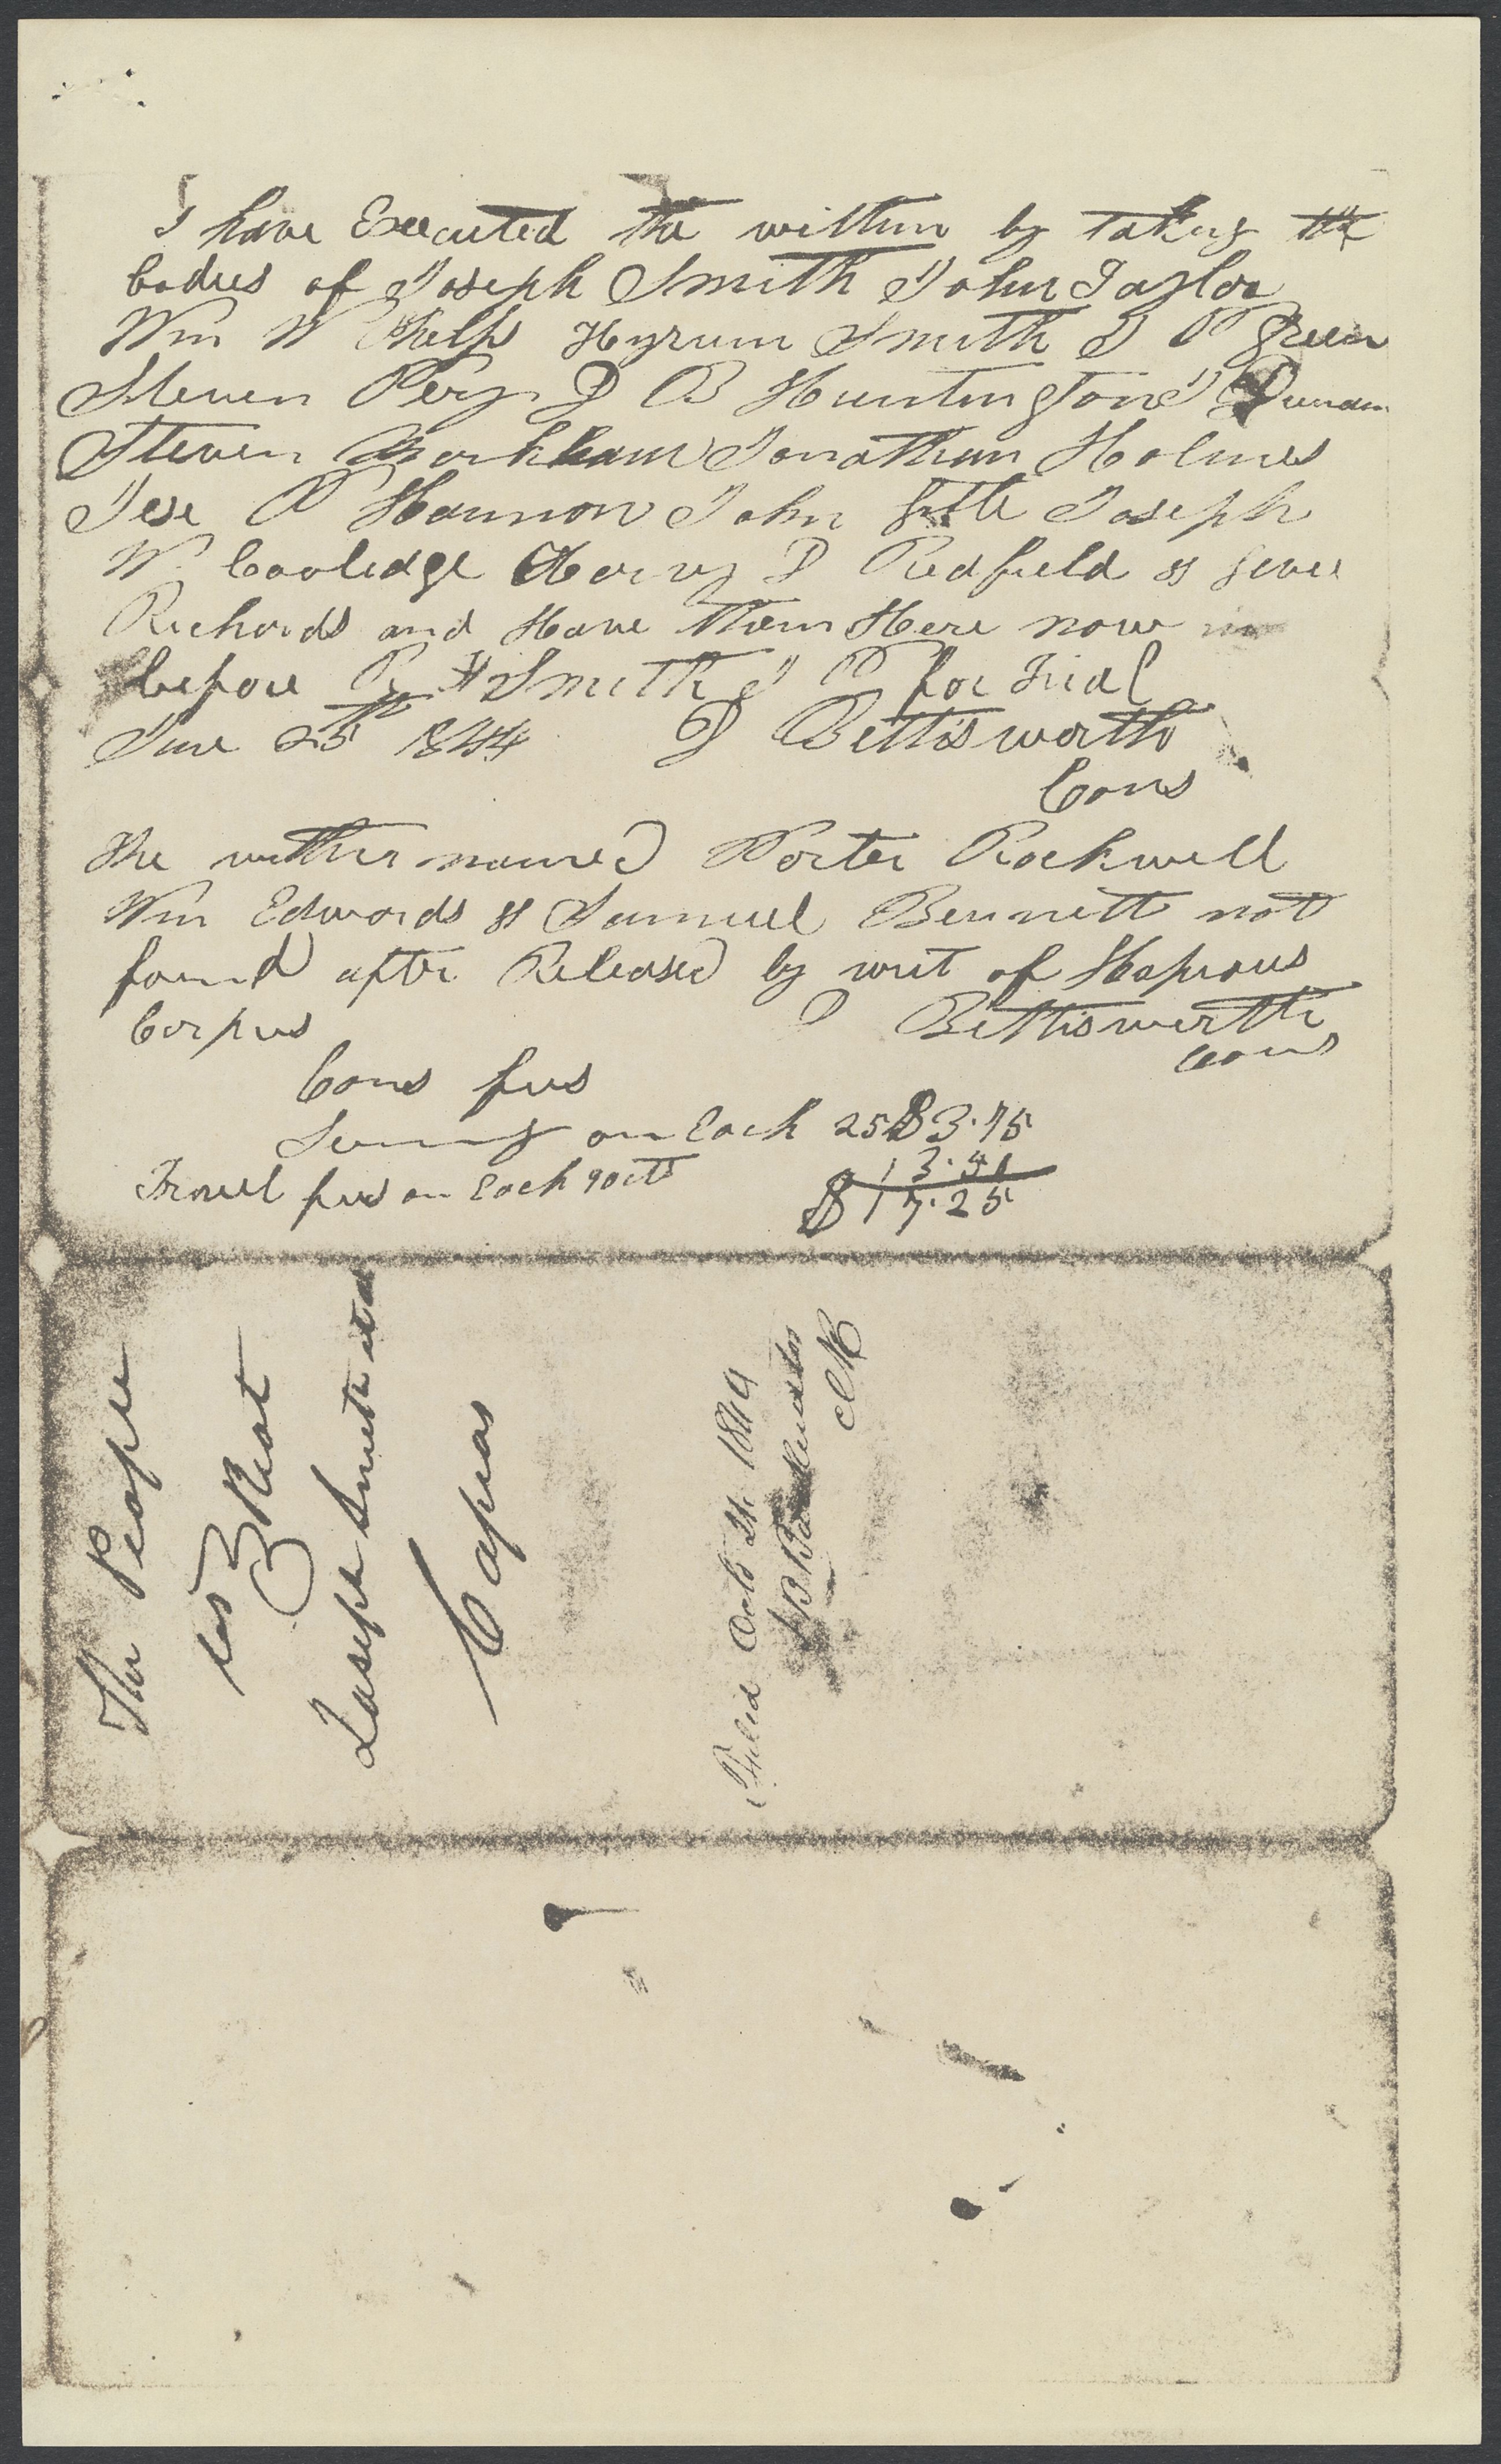 I have Executed the within by taking the
bodies of Joseph Smith John Taylor
Wm W Phelps Hyrum Smith J P Green
Steven Pery D B Huntington J Dunam
Steven Markham Jonathan Holmes
Jese P Harmon John Lytle Joseph
W Cooledge Harvy D Redfield & Levi
Richards and Have them Here now
before R F Smith J P for Trial
June 25th 1844 D Bettisworth
Cons
The within named Porter Rockwell
Wm Edwards & Samuel Bennett not
found after Released by writ of Hapious
Corpus D Bettisworth
Cons
Cons fees
on Each 25 $3.75
Travel fees on Each 90cts 13.50
$17.25
The People
vs Riot
Joseph Smith et al
Capias
Filed Octo 21. 1844
J B Backenstos
Clk